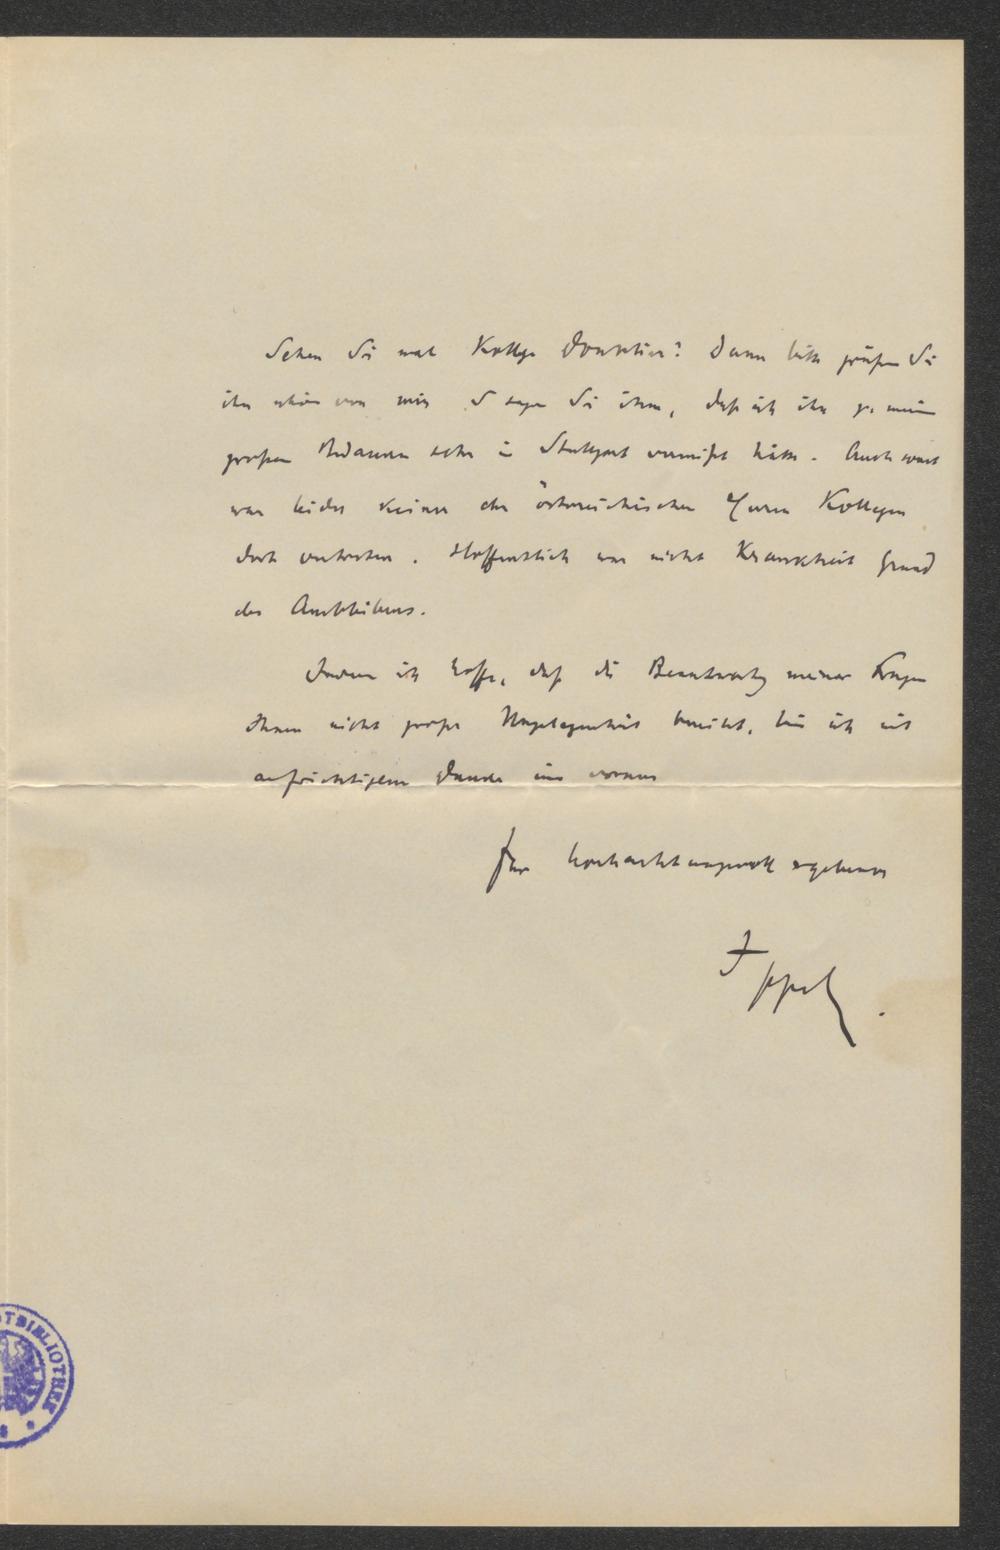 Sehen Sie mal Kollege Donatin? Dann bitte grüßen Sie
ihn schön von mir u sagen Sie ihm, daß ich ihn zu meinem
großen Bedauern sehr in Stuttgart vermißt hätte. Auch sonst
war leider keiner der österreichischen Herren Kollegen
dort vertreten. Hoffentlich war nicht Krankheit Grund
des Ausbleibens.
Indem ich hoffe, daß die Beantwortg meiner Fragen
Ihnen nicht große Ungelegenheit bereitet, bin ich mit
aufrichtigem Danke im voraus
Ihr hochachtungsvoll ergebener
Ippel.
BIBLIOTHEK